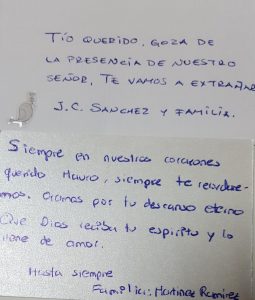 TÍO QUERIDO, GOZA DE
LA PRESENCIA DE NUESTRO
SEÑOR, TE VAMOS A EXTRAÑAR
J.C. SANCHEZ Y FAMILIA.
Siempre en nuestros corazones
querido Mauro, siempre te recordare-
mos. Oramos por tu descanso eterno
Que Dios reciba tu espíritu y lo
llene de amor.
Hasta siempre
Familia: Martinez Ramirez